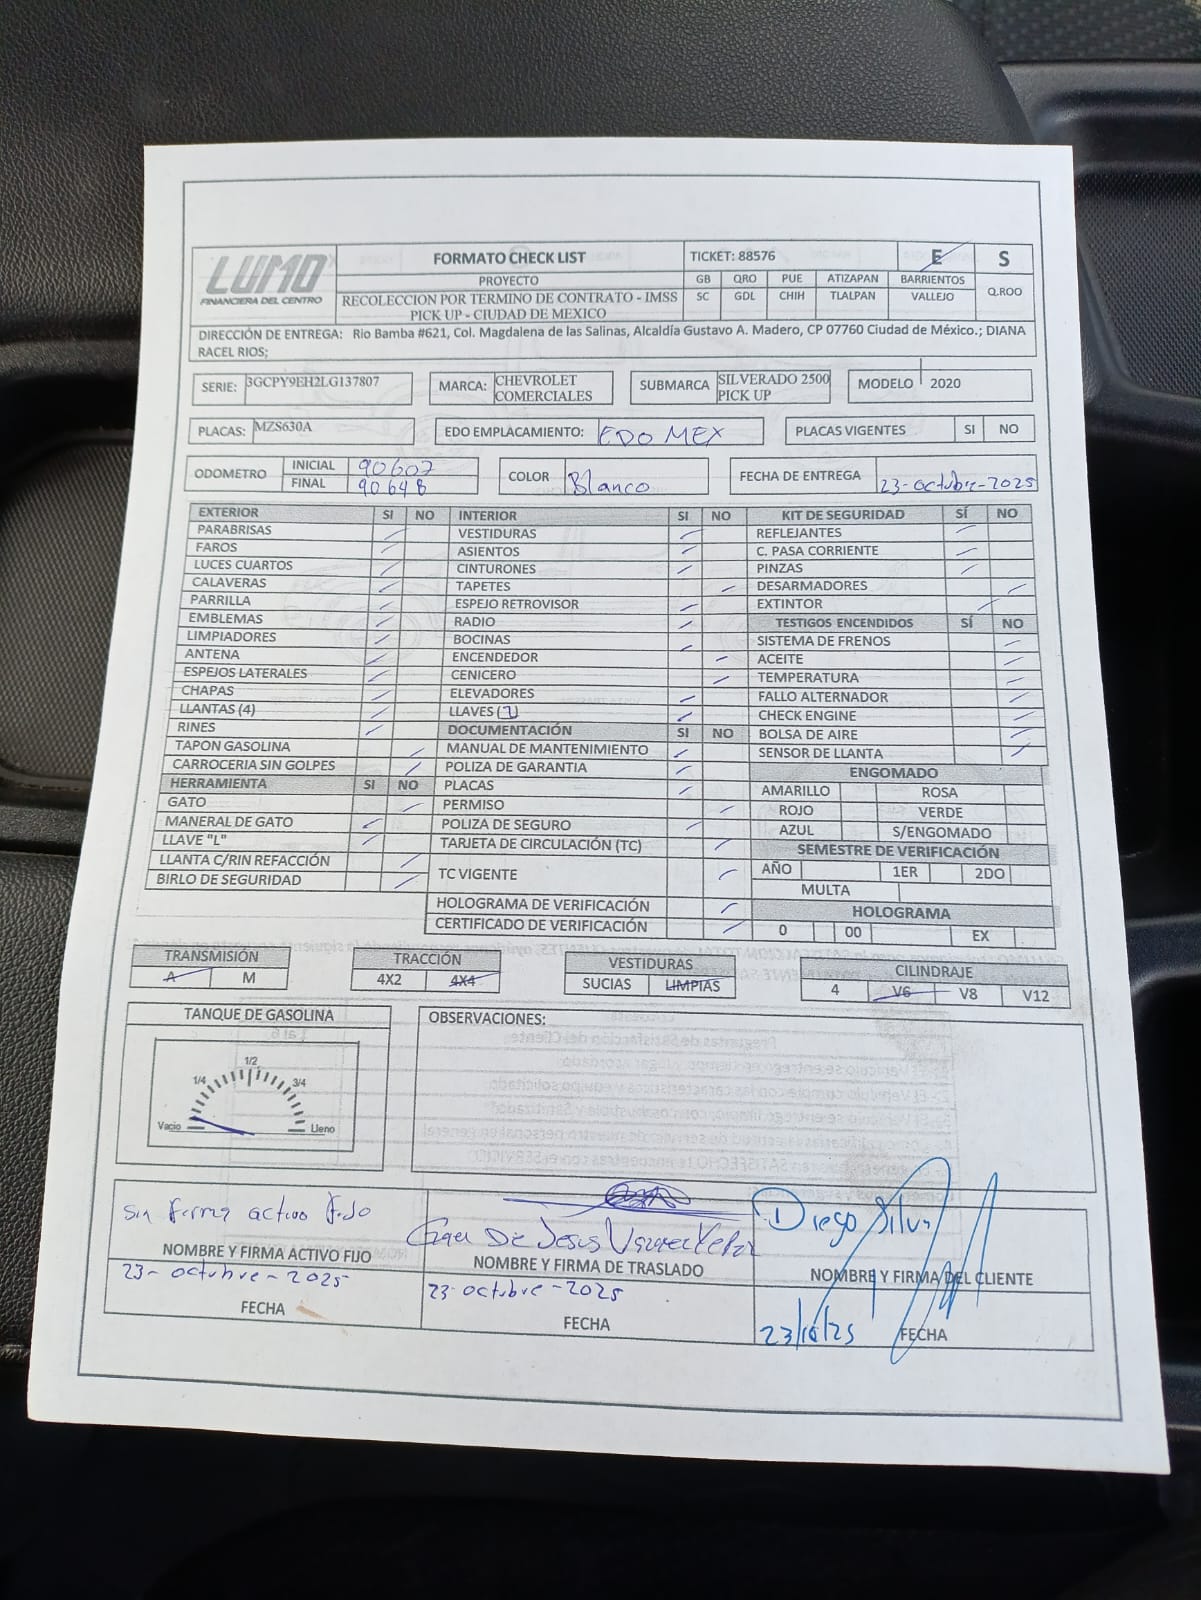 LUMO
FINANCIERA DEL CENTRO
FORMATO CHECK LIST
PROYECTO
RECOLECCION POR TERMINO DE CONTRATO - IMSS
PICK UP - CIUDAD DE MEXICO
TICKET: 88576 E S
GB QRO PUE ATIZAPAN BARRIENTOS
SC GDL CHIH TLALPAN VALLEJO Q.ROO
DIRECCIÓN DE ENTREGA: Rio Bamba #621, Col. Magdalena de las Salinas, Alcaldía Gustavo A. Madero, CP 07760 Ciudad de México.; DIANA
RACEL RIOS;
SERIE: 3GCPY9EH2LG137807 MARCA: CHEVROLET COMERCIALES SUBMARCA SILVERADO 2500 PICK UP MODELO 2020
PLACAS: MZS630A EDO EMPLACAMIENTO: EDO MEX PLACAS VIGENTES SI NO
ODOMETRO INICIAL 90607 FINAL 90648 COLOR Blanco FECHA DE ENTREGA 23-octubre-2025
EXTERIOR SI NO INTERIOR SI NO KIT DE SEGURIDAD SÍ NO
PARABRISAS VESTIDURAS REFLEJANTES
FAROS ASIENTOS C. PASA CORRIENTE
LUCES CUARTOS CINTURONES PINZAS
CALAVERAS TAPETES DESARMADORES
PARRILLA ESPEJO RETROVISOR EXTINTOR
EMBLEMAS RADIO TESTIGOS ENCENDIDOS SÍ NO
LIMPIADORES BOCINAS SISTEMA DE FRENOS
ANTENA ENCENDEDOR ACEITE
ESPEJOS LATERALES CENICERO TEMPERATURA
CHAPAS ELEVADORES FALLO ALTERNADOR
LLANTAS (4) LLAVES (1) CHECK ENGINE
RINES DOCUMENTACIÓN SI NO BOLSA DE AIRE
TAPON GASOLINA MANUAL DE MANTENIMIENTO SENSOR DE LLANTA
CARROCERIA SIN GOLPES POLIZA DE GARANTIA ENGOMADO
HERRAMIENTA SI NO PLACAS AMARILLO ROSA
GATO PERMISO ROJO VERDE
MANERAL DE GATO POLIZA DE SEGURO AZUL S/ENGOMADO
LLAVE "L" TARJETA DE CIRCULACIÓN (TC) SEMESTRE DE VERIFICACIÓN
LLANTA C/RIN REFACCIÓN TC VIGENTE AÑO 1ER 2DO
BIRLO DE SEGURIDAD MULTA
HOLOGRAMA DE VERIFICACIÓN HOLOGRAMA
CERTIFICADO DE VERIFICACIÓN 0 00 EX
TRANSMISIÓN TRACCIÓN VESTIDURAS CILINDRAJE
A M 4X2 4X4 SUCIAS LIMPIAS 4 V6 V8 V12
TANQUE DE GASOLINA OBSERVACIONES:
1/4 1/2 3/4
Vacio Lleno
sin firma activo fijo De Jesus Diego Silva
NOMBRE Y FIRMA ACTIVO FIJO NOMBRE Y FIRMA DE TRASLADO NOMBRE Y FIRMA DEL CLIENTE
23-octubre-2025 23-octubre-2025 23/10/25
FECHA FECHA FECHA